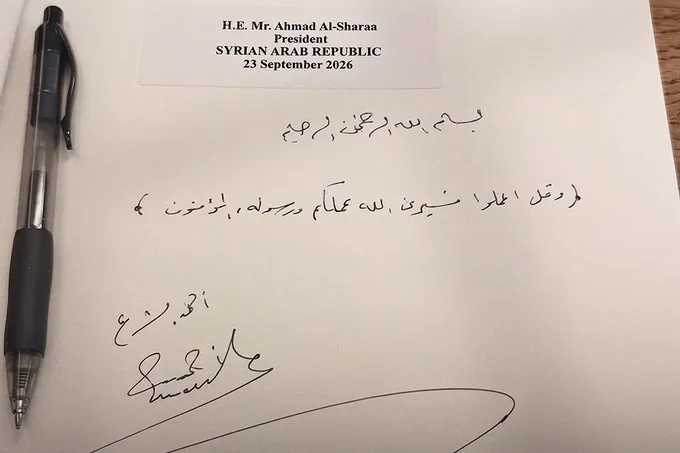 H.E. Mr. Ahmad Al-Sharaa
President
SYRIAN ARAB REPUBLIC
23 September 2026
بسم الله الرحمن الرحيم
﴿ وقل اعملوا فسيرى الله عملكم ورسوله والمؤمنون ﴾
أحمد الشرع